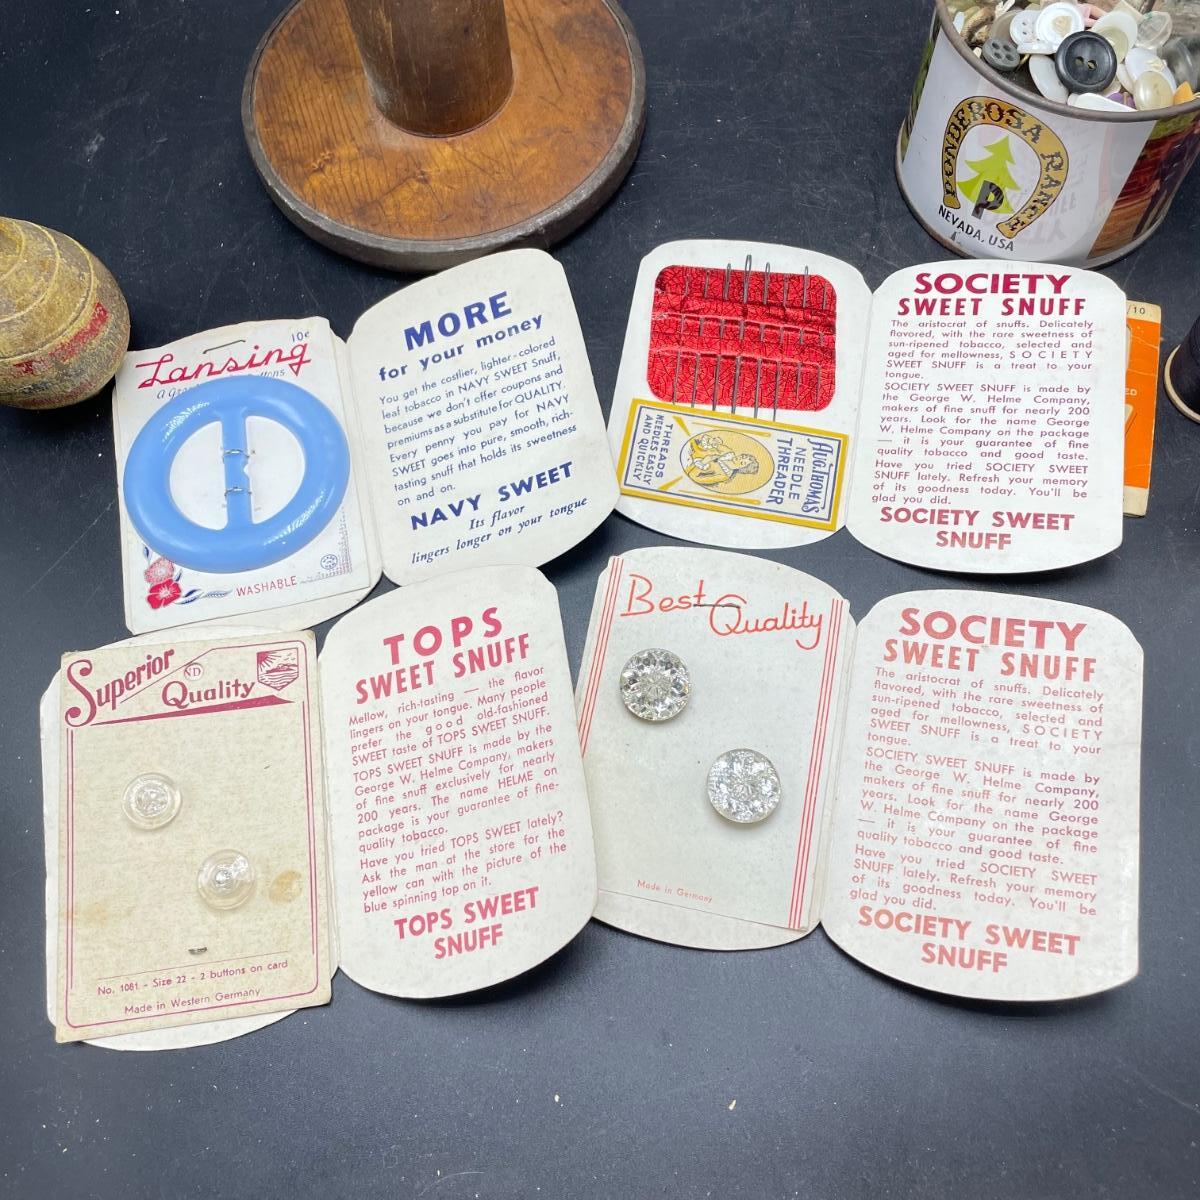 PONDEROSA RANCH
P
NEVADA, USA
Lansing
10¢
WASHABLE
MORE
for your money
You get the costlier, lighter-colored
leaf tobacco in NAVY SWEET Snuff,
because we don't offer coupons and
premiums as a substitute for QUALITY.
Every penny you pay for NAVY
SWEET goes into pure, smooth, rich-
tasting snuff that holds its sweetness
on and on.
NAVY SWEET
Its flavor
lingers longer on your tongue
AUG. THOMAS
NEEDLE
THREADER
THREADS
NEEDLES EASILY
AND QUICKLY
SOCIETY
SWEET SNUFF
The aristocrat of snuffs. Delicately
flavored, with the rare sweetness of
sun-ripened tobacco, selected and
aged for mellowness, SOCIETY
SWEET SNUFF is a treat to your
tongue.
SOCIETY SWEET SNUFF is made by
the George W. Helme Company,
makers of fine snuff for nearly 200
years. Look for the name George
W. Helme Company on the package
— it is your guarantee of fine
quality tobacco and good taste.
Have you tried SOCIETY SWEET
SNUFF lately. Refresh your memory
of its goodness today. You'll be
glad you did.
SOCIETY SWEET
SNUFF
/10
Superior
ND
Quality
No. 1081 - Size 22 - 2 buttons on card
Made in Western Germany
TOPS
SWEET SNUFF
Mellow, rich-tasting — the flavor
lingers on your tongue. Many people
prefer the good old-fashioned
SWEET taste of TOPS SWEET SNUFF.
TOPS SWEET SNUFF is made by the
George W. Helme Company, makers
of fine snuff exclusively for nearly
200 years. The name HELME on
package is your guarantee of fine-
quality tobacco.
Have you tried TOPS SWEET lately?
Ask the man at the store for the
yellow can with the picture of the
blue spinning top on it.
TOPS SWEET
SNUFF
Best Quality
Made in Germany
SOCIETY
SWEET SNUFF
The aristocrat of snuffs. Delicately
flavored, with the rare sweetness of
sun-ripened tobacco, selected and
aged for mellowness, SOCIETY
SWEET SNUFF is a treat to your
tongue.
SOCIETY SWEET SNUFF is made by
the George W. Helme Company,
makers of fine snuff for nearly 200
years. Look for the name George
W. Helme Company on the package
— it is your guarantee of fine
quality tobacco and good taste.
Have you tried SOCIETY SWEET
SNUFF lately. Refresh your memory
of its goodness today. You'll be
glad you did.
SOCIETY SWEET
SNUFF